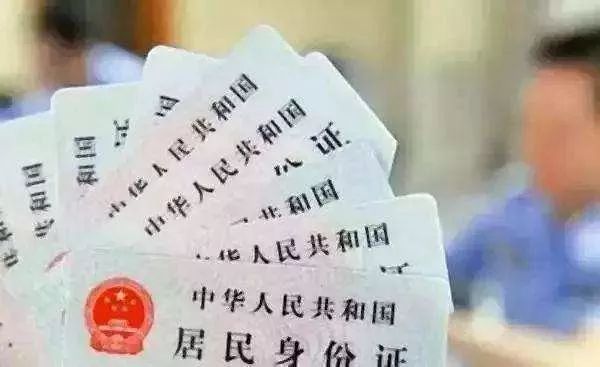 和国
共和国
中华人民共和国
中华人民共和国
份证
中华人民共和国
中华人民共和国
居民身份证